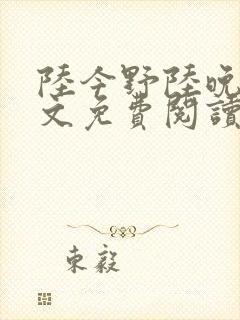 陸今野陸晚
文免費閱讀
東毅